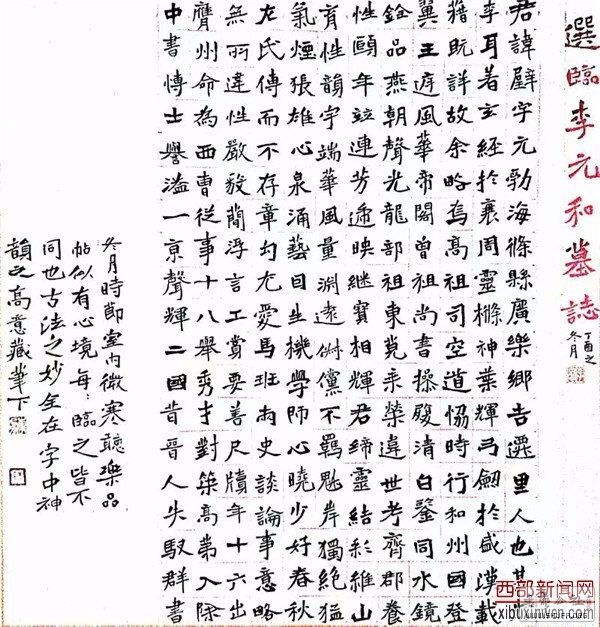 選臨李元和墓誌
丁酉之
冬月
君諱壁字元勃海條縣廣樂鄉吉遷里人也其
李耳著玄經於衰周靈櫛神葉輝弓劍於盛漢載
籍既詳故余略焉高祖司空道協時行和州國登
翼王庭風華帝閣曾祖尚書操履清白鑒同水鏡
銓品燕朝聲光龍部祖東莞乘榮違世考齊郡養
性頤年竝連芳遞映繼寶相輝君締靈結彩維山
育性韻宇端華風量淵遠倜儻不羈魁岸獨絕猛
氣煙張雄心泉涌藝因生機學師心曉少好春秋
左氏傳而不存章句尤愛馬班兩史談論事意略
無所違性嚴毅簡浮言工賞要善尺牘年十六出
膺州命為西曹從事十八舉秀才對策高第入除
中書博士譽溢一京聲輝二國昔晉人失馭群書
冬月時節室內微寒聽樂品
帖似有心境每:臨之皆不
同也古法之妙全在字中神
韻之高意藏筆下
西部新闻网
xibuxinwen.com